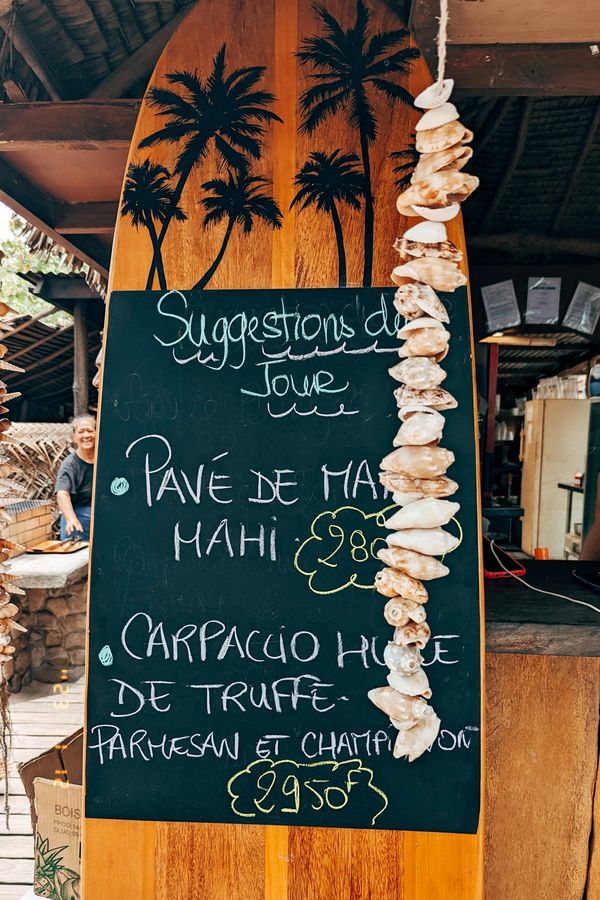 Suggestions du
Jour
PAVÉ DE MA
MAHI
280
CARPACCIO HUILE
DE TRUFFE
PARMESAN ET CHAMPIGNON
2950F
BOIS